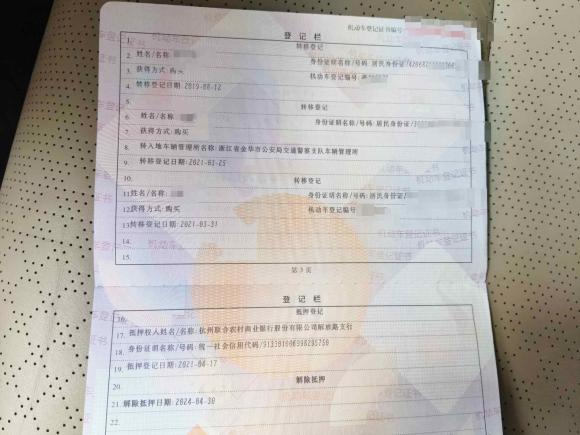 机动车登记证书编号
登记栏
1. 转移登记
2. 姓名/名称: 身份证明名称/号码: 居民身份证/
3. 获得方式: 购买 机动车登记编号:
4. 转移登记日期: 2019-08-12
5.
6. 转移登记
姓名/名称: 身份证明名称/号码: 居民身份证/
7. 获得方式: 购买
8. 转入地车辆管理所名称: 浙江省金华市公安局交通警察支队车辆管理所
9. 转移登记日期: 2021-03-25
10. 转移登记
11. 姓名/名称: 身份证明名称/号码: 居民身份证/
12. 获得方式: 购买 机动车登记编号
13. 转移登记日期: 2021-03-31
14.
15.
第 3 页
登记栏
16. 抵押登记
17. 抵押权人姓名/名称: 杭州联合农村商业银行股份有限公司解放路支行
18. 身份证明名称/号码: 统一社会信用代码/
19. 抵押登记日期: 2021-04-17
20. 解除抵押
21. 解除抵押日期: 2024-04-30
22.